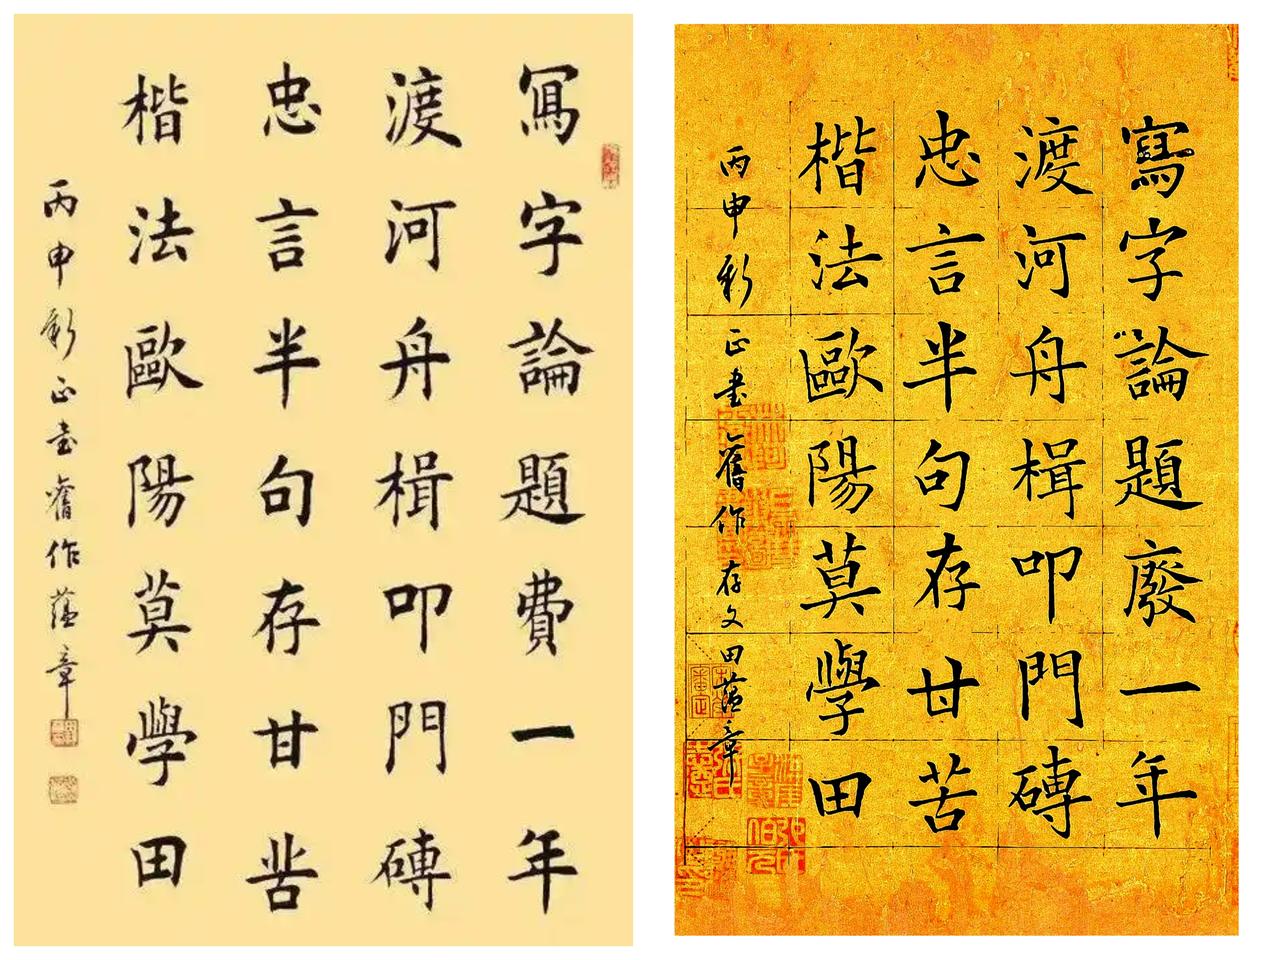 寫字論題費一年
渡河舟楫叩門磚
忠言半句存甘苦
楷法歐陽莫學田
丙申彩正書舊作蘊章
寫字論題廢一年
渡河舟楫叩門磚
忠言半句存甘苦
楷法歐陽莫學田
丙申彩正書舊作存文田蘊章